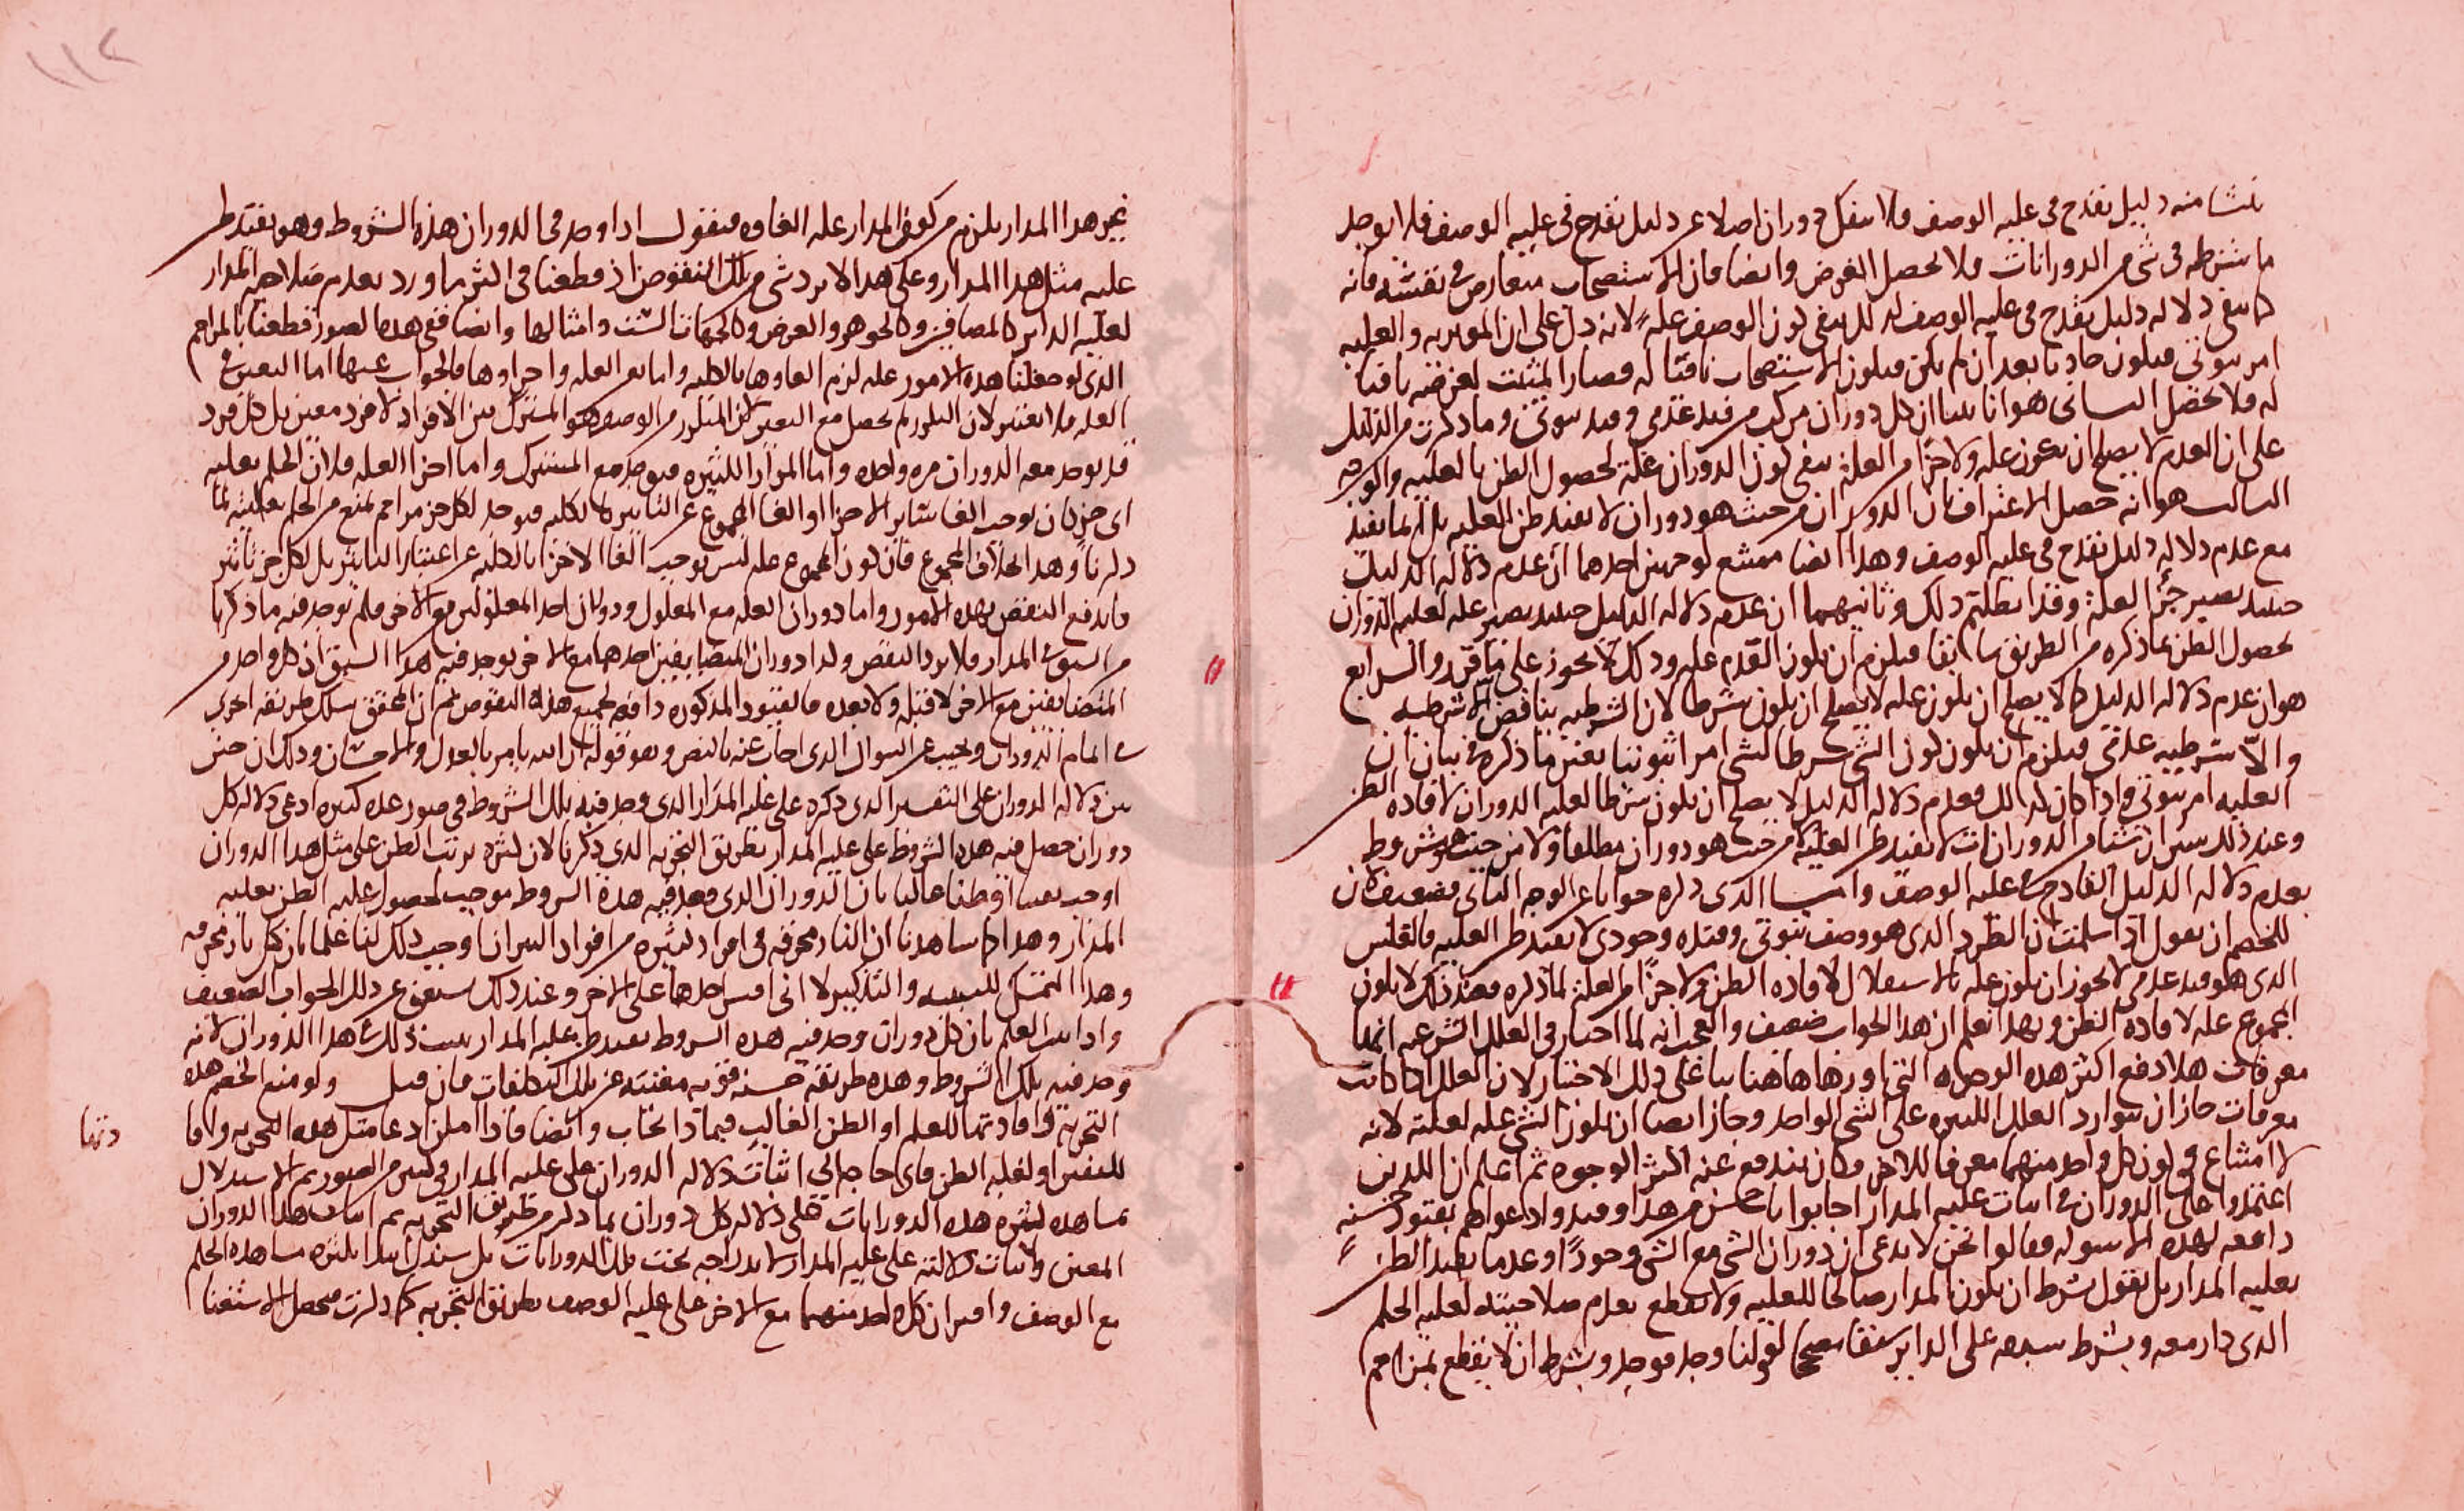 ينشا منه دليل يقدح في علية الوصف فلا ينفك دوران اصلا عن دليل يقدح في علية الوصف فلا يوجد
ما شرطه في شي من الدورانات فلا يحصل الغرض وايضا فان الاستصحاب متعارض في نفسه فانه
كما ينفي دلالة دليل يقدح في علية الوصف كذلك ينفي كون الوصف علة لانه دل على ان الموثرية والعلية
امر ثبوتي فيكون حادثا بعد ان لم يكن فيكون الاستصحاب نافيا له فصار المثبت لغرضه نافيا
له فلا يحصل الثاني هو انا بينا ان كل دوران مركب من قيد عدمي وقيد ثبوتي وما ذكرت من الدليل
على ان العدم لا يصلح ان يكون علة ولا جزا من العلة ينفي كون الدوران علة لحصول الظن بالعلية والوجه
الثالث هو انه حصل الاعتراف بان الدوران من حيث هو دوران لا يفيد ظن العلية بل انما يفيد
مع عدم دلالة دليل يقدح في علية الوصف وهذا ايضا ممتنع لوجهين احدهما ان عدم دلالة الدليل
حينئذ يصير جزأ العلة وقد ابطلتم ذلك وثانيهما ان عدم دلالة الدليل حينئذ يصير علة لعلية الدوران
لحصول الظن بما ذكره من الطريق سابقا فيلزم ان يكون العدم علة وذلك لا يجوز على ما قرر والرابع
هو ان عدم دلالة الدليل كما لا يصلح ان يكون علة لا يصلح ان يكون شرطا لان الشرطية يناقض اللاشرطية
واللاشرطية عدمي فيلزم ان يكون كون الشي شرطا لشي امرا ثبوتيا بعين ما ذكره في بيان ان
العلية امر ثبوتي واذا كان كذلك فعدم دلالة الدليل لا يصلح ان يكون شرطا لعلية الدوران لافادة الظن
وعند ذلك يتبين ان شيئا من الدورانات لا يفيد ظن العلية من حيث هو دوران مطلقا ولا من حيث هو مشروط
بعدم دلالة الدليل القادح في علية الوصف واما الذي ذكره جوابا عن الوجه الثاني فضعيف لان
للخصم ان يقول اذا سلمت ان الطرد الذي هو وصف ثبوتي وقيده وجودي لا يفيد ظن العلية فالعكس
الذي هو قيد عدمي لا يجوز ان يكون علة بالاستقلال لافادة الظن ولا جزأ من العلة لما ذكره فعند ذلك لا يكون
المجموع علة لافادة الظن وبهذا نعلم ان هذا الجواب ضعيف والعجب انه لما اختار في العلل الشرعية انها
معرفات هلا دفع اكثر هذه الوجوه التي اوردها هاهنا بناء على ذلك الاختيار لان العلل اذا كانت
معرفات جاز ان يتوارد العلل الكثيرة على الشي الواحد وجاز ايضا ان يكون الشي علة لعلته لانه
لا امتناع في كون كل واحد منهما معرفا للاخر وكان يندفع عنه اكثر الوجوه ثم اعلم ان الذين
اعتمدوا على الدوران في اثبات علية المدار اجابوا باحسن من هذا وقيدوا دعواهم بقيود حسنة
دافعة لهذه الاسولة فقالوا نحن لا ندعي ان دوران الشي مع الشي وجودا وعدما يفيد الظن
بعلية المدار بل نقول بشرط ان يكون المدار صالحا للعلية ولا نقطع بعدم صلاحيته لعلية الحكم
الذي دار معه وبشرط سبقه على الداير سبقا مصححا لقولنا وجد فوجد وبشرط ان لا نقطع بمزاحم
١١٢
غير هذا المدار يلزم من كون المدار علة الغاوه فنقول اذا وجد في الدوران هذه الشروط وهو يفيد ظن
علية مثل هذا المدار وعلى هذا لا يرد شي من تلك النقوض اذ قطعنا في اكثر ما ورد بعدم صلاحية المدار
لعلية الداير كالمضافين وكالجوهر والعرض وكالجهات الست وامثالها وايضا ففي هذه الصور قطعنا بالمزاحم
الذي لو جعلنا هذه الامور علة لزم الغاوها بالكلية واما تعين العلة واجزاوها فالجواب عنها اما التعين في
العلة فلا يعتبر لان التكرر لم يحصل مع التعين لان المتكرر من الوصف هو المشترك بين الافراد لا فرد معين بل كل فرد
قد يوجد معه الدوران مرة واحدة واما المرار الكثيرة فيوجد مع المشترك واما اجزا العلة فلان الحكم بعلية
اي جز كان يوجب الغا ساير الاجزا او الغا المجموع عن التاثير بالكلية فيوجد لكل جز مزاحم يمنع من الحكم بعليته لما
ذكرنا وهذا بخلاف المجموع فان كون المجموع علة ليس يوجب الغا الاجزا بالكلية عن اعتبار التاثير بل لكل جز تاثير
فاندفع النقض بهذه الامور واما دوران العلة مع المعلول ودوران احد المعلولين مع الاخر فلم يوجد فيه ما ذكرنا
من سبق المدار فلا يرد النقض ولذا دوران المتضايفين احدهما مع الاخر لم يوجد فيه هذا السبق اذ كل واحد من
المتضايفين مع الاخر لا قبله ولا بعده فالقيود المذكورة دافعة لجميع هذه النقوض ثم ان المحقق سلك طريقة اخرى
في اتمام الدوران ويجيب عن السوال الذي اجاب عنه بالنص وهو قوله ان الله يامر بالعدل والاحسان وذلك ان حين
بين دلالة الدوران على التفسير الذي ذكره على علية المدار الذي وجد فيه تلك الشروط في صور عدة كثيرة ادعى دلالة كل
دوران حصل فيه هذه الشروط على علية المدار بطريق التجربة الذي ذكرنا لان كثرة ترتب الظن على مثل هذا الدوران
اوجب يقينا او ظنا غالبا بان الدوران الذي وجد فيه هذه الشروط موجب لحصول غلبة الظن بعلية
المدار وهذا كما شاهدنا ان النار محرقة في افراد كثيرة من افراد النيران اوجب ذلك لنا علما بان كل نار محرقة
وهذا التمثيل للتنبيه والتذكير لا اني اقيس احدهما على الاخر وعند ذلك يستغني عن ذلك الجواب الضعيف
واذا ثبت العلم بان كل دوران وجد فيه هذه الشروط يفيد ظن علية المدار ثبت ذلك في هذا الدوران لانه
وجد فيه تلك الشروط وهذه طريقة حسنة قوية مغنية عن تلك التكلفات فان قيل ولو منع الخصم هذه
التجربة وافادتها للعلم او الظن الغالب فيما ذا يجاب وايضا فاذا امكن ادعا مثل هذه التجربة وافا
دتها
لليقين او لغلبة الظن فاي حاجة الى اثبات دلالة الدوران على علية المدار في كثير من الصور ثم الاستدلال
بمشاهدة كثرة هذه الدورانات على دلالة كل دوران بما ذكر من طريق التجربة ثم اثبات هذا الدوران
المعين واثبات دلالته على علية المدار لاندراجه تحت تلك الدورانات بل يستدل ابتدا بكثرة مشاهدة الحكم
مع الوصف واقتران كل واحد منهما مع الاخر على علية الوصف بطريق التجربة كما ذكرت فيحصل الاستغنا